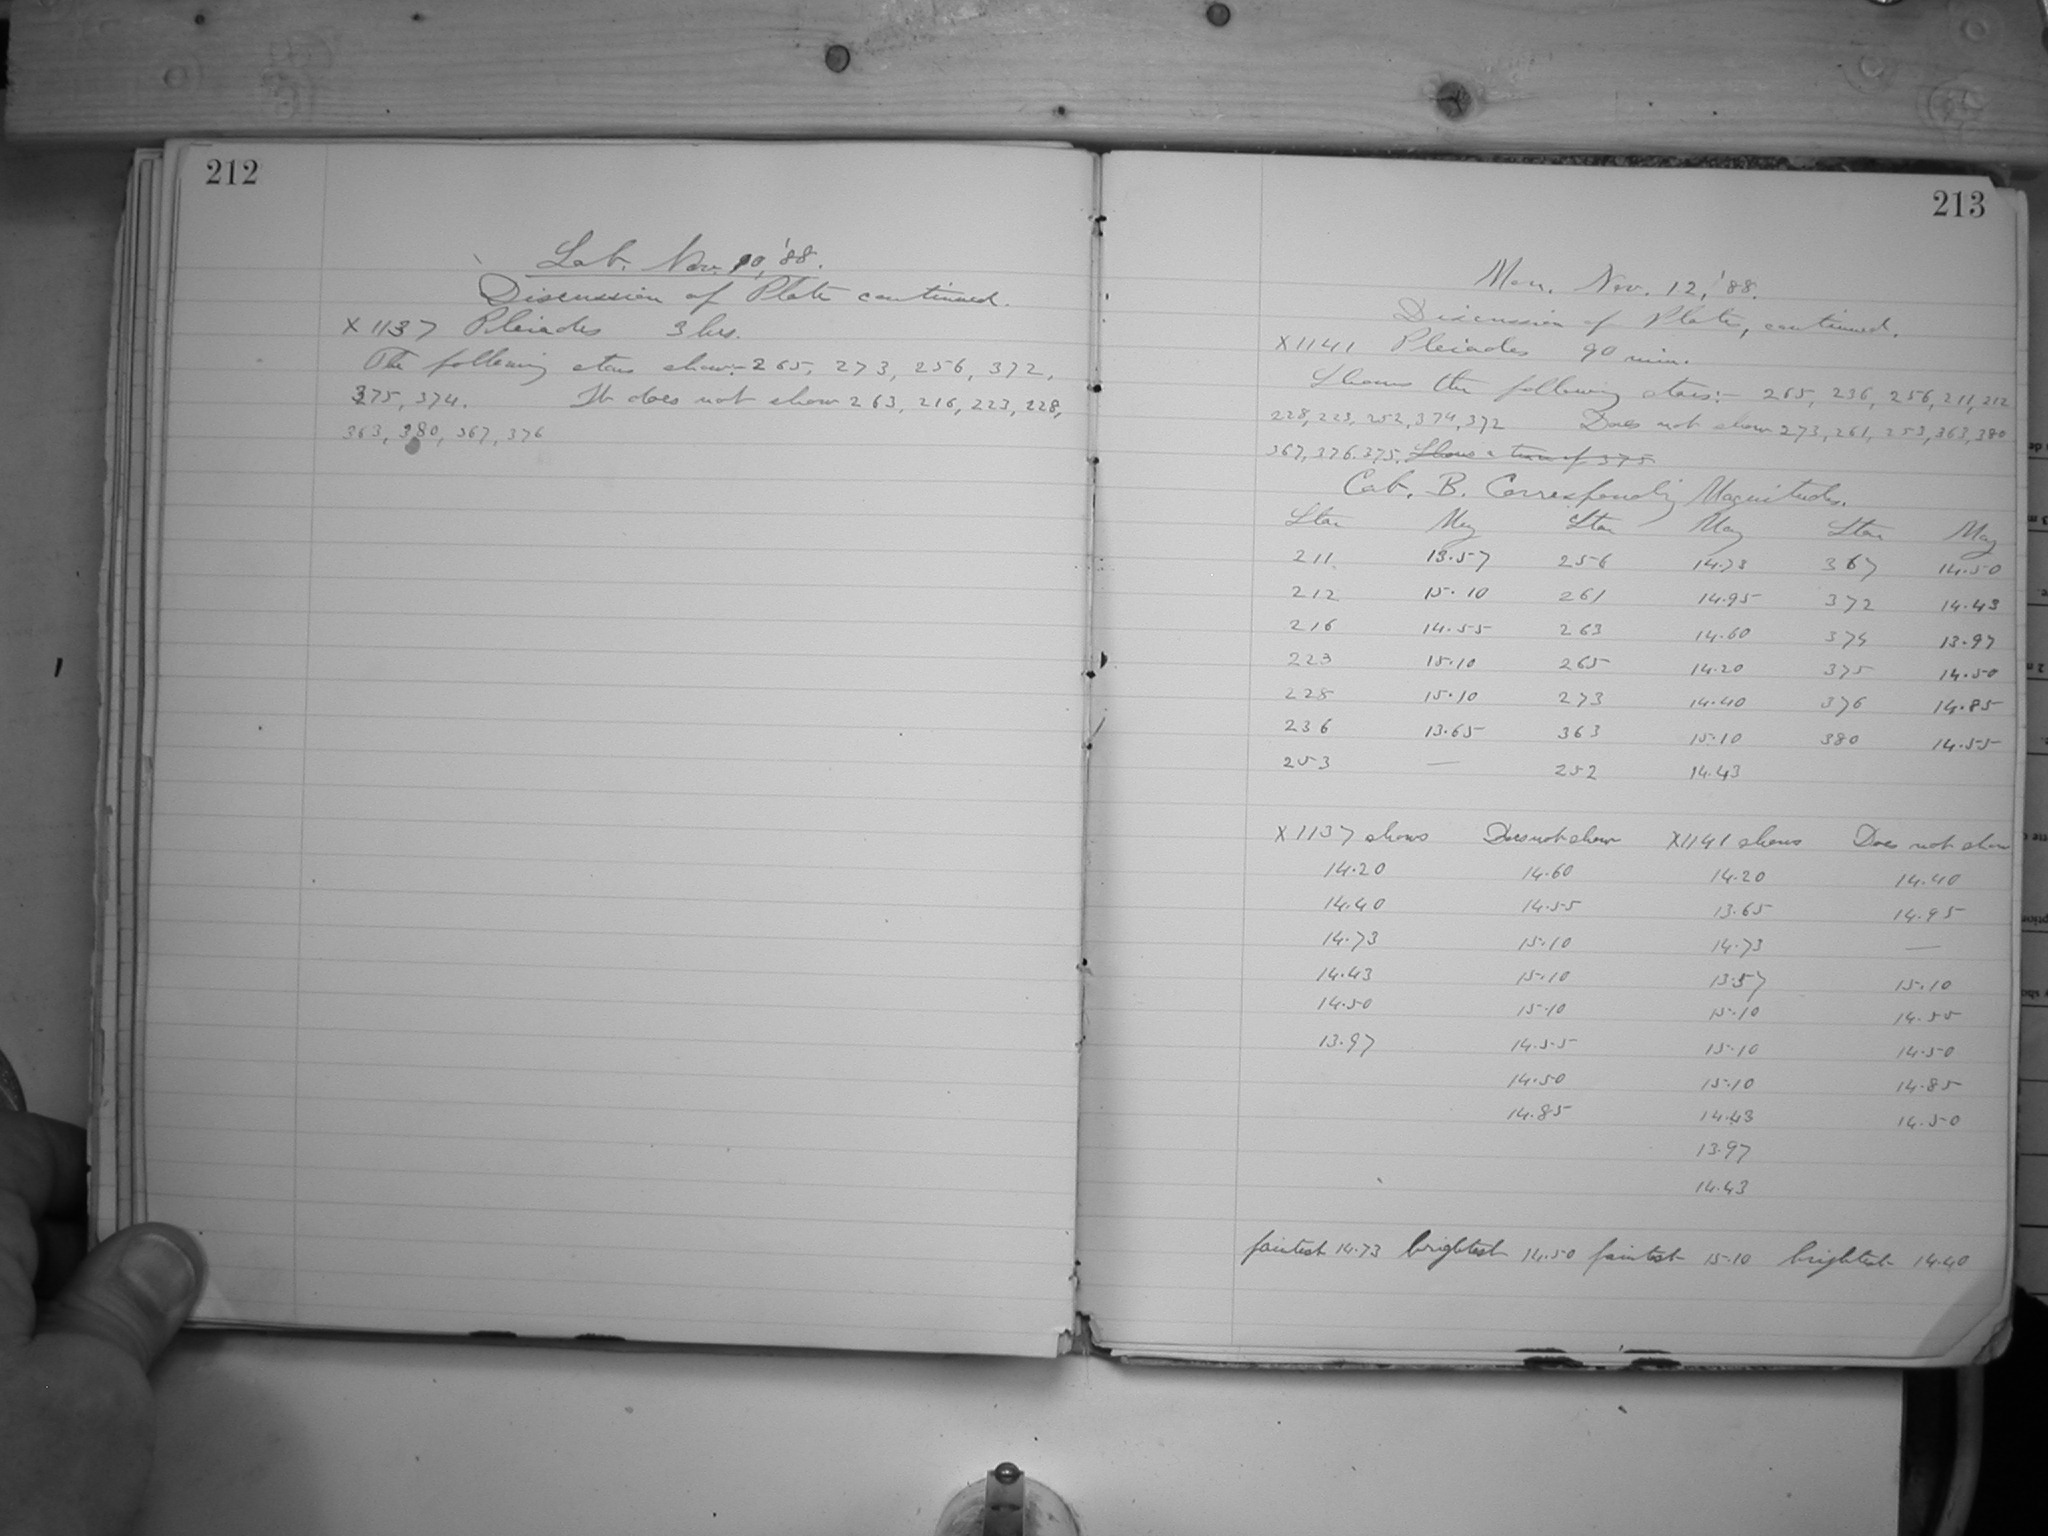 212
Lab. Nov. 10, '88.
Discussion of Plate continued.
X1137 Pleiades 3 hrs.
The following stars show:- 265, 273, 256, 372,
375, 374. It does not show 263, 216, 223, 228,
363, 380, 367, 376
213
Mon. Nov. 12, '88.
Discussion of Plate, continued.
X1141 Pleiades 90 min.
Shows the following stars:- 265, 236, 256, 211, 212
228, 223, 252, 374, 372 Does not show 273, 261, 253, 363, 380
367, 376. 375. Shows a trace of 375
Cat. B. Corresponding Magnitudes.
Star Mag Star Mag Star Mag
211 13.57 256 14.73 367 14.50
212 15.10 261 14.95 372 14.43
216 14.55 263 14.60 374 13.97
223 15.10 265 14.20 375 14.50
228 15.10 273 14.40 376 14.85
236 13.65 363 15.10 380 14.55
253 — 252 14.43
X1137 shows Does not show X1141 shows Does not show
14.20 14.60 14.20 14.40
14.40 14.55 13.65 14.95
14.73 15.10 14.73 —
14.43 15.10 13.57 15.10
14.50 15.10 15.10 14.55
13.97 14.55 15.10 14.50
14.50 15.10 14.85
14.85 14.43 14.50
13.97
14.43
faintest 14.73 brightest 14.50 faintest 15.10 brightest 14.40